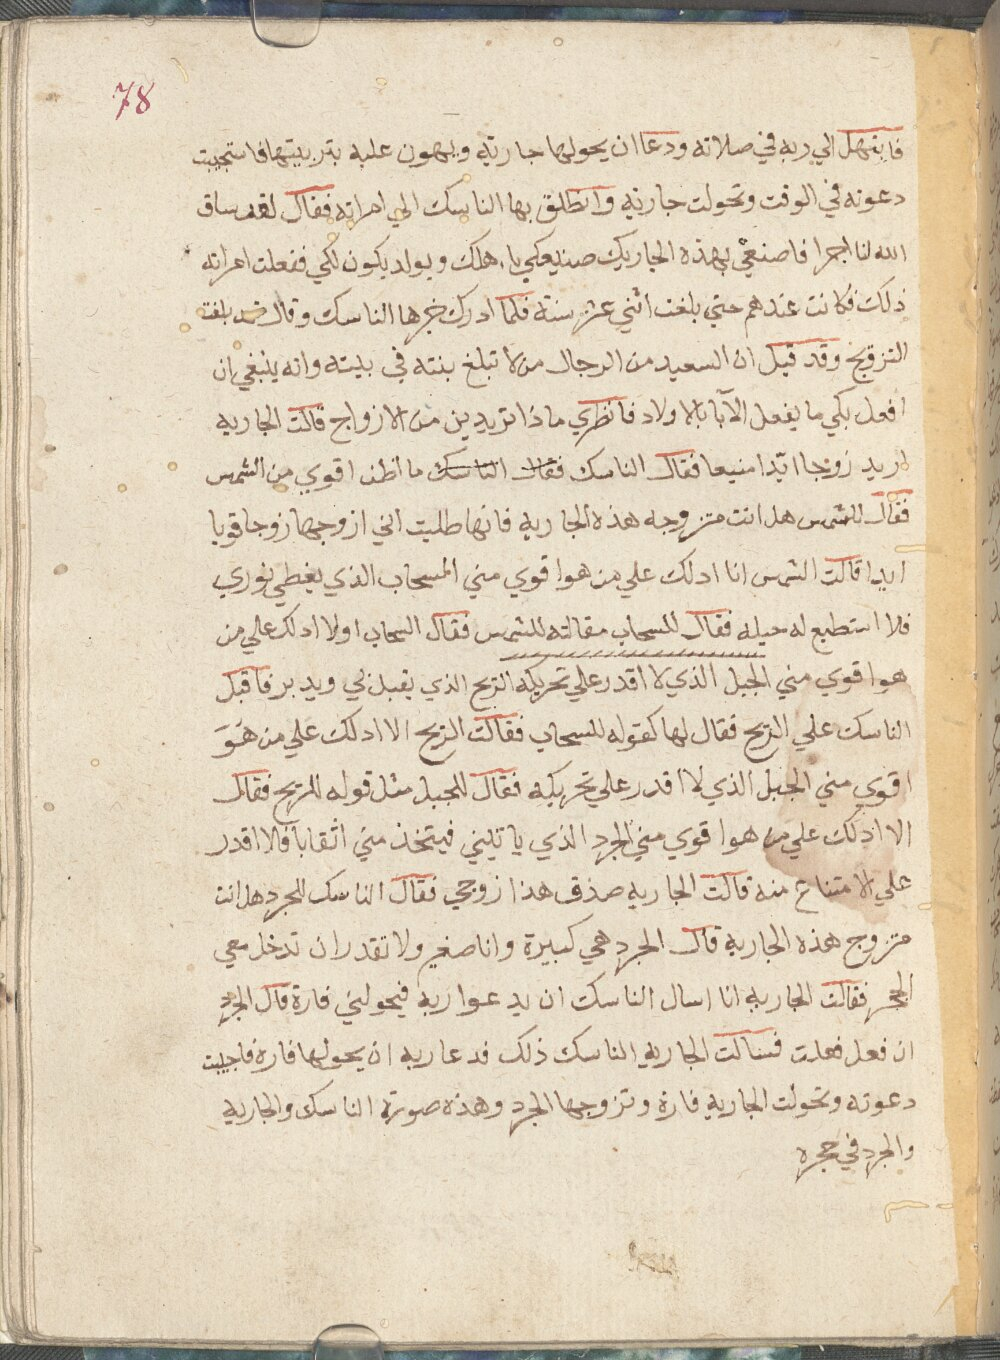 78
فابتهل الي ربه في صلاته ودعا ان يحولها جاريه ويهون عليه بتربيتها فاستجيبت
دعوته في الوقت وتحولت جاريه وانطلق بها الناسك الي امراته فقال لقد ساق
الله لنا اجرا فاصنعي بهذه الجاريه صنيعكي باهلك وبولد يكون لكي ففعلت امراته
ذلك فكانت عندهم حتي بلغت اثني عشر سنة فلما ادرك خبرها الناسك وقال قد بلغت
التزويج وقد قيل ان السعيد من الرجال من لا تبلغ بنته في بيته وانه ينبغي ان
افعل بكي ما يفعل الآبا بالاولاد فانظري ماذا تريدين من الازواج قالت الجاريه
اريد زوجا ايّدا منيعا فقال الناسك فقال الناسك ما اظن اقوي من الشمس
فقال للشمس هل انت متزوجه هذه الجاريه فانها طلبت اني ازوجها زوجا قويا
ايدا قالت الشمس انا ادلك علي من هو اقوي مني السحاب الذي يغطي نوري
فلا استطيع له حيله فقال للسحاب مقالته للشمس فقال السحاب اولا ادلك علي من
هو اقوي مني الجبل الذي لا اقدر علي تحريكه الريح الذي يقبل بي ويدبر فاقبل
الناسك علي الريح فقال لها كقوله للسحاب فقالت الريح الا ادلك علي من هُوَ
اقوي مني الجبل الذي لا اقدر علي تحريكه فقال للجبل مثل قوله للريح فقال
الا ادلك علي من هو اقوي مني الجرد الذي ياتيني فيتخذ مني اثقابا فلا اقدر
علي الامتناع منه قالت الجاريه صدق هذا زوجي فقال الناسك للجرد هل انت
متزوج هذه الجاريه قال الجرد هي كبيرة وانا صغير ولا تقدر ان تدخل معي
الجحر فقالت الجاريه انا اسال الناسك ان يدعوا ربه فيحولني فارة قال الجرد
ان فعل فعلت فسالت الجاريه الناسك ذلك فدعا ربه ان يحولها فاره فاجيبت
دعوته وتحولت الجاريه فارة وتزوجها الجرد وهذه صورة الناسك والجاريه
والجرد في حجره